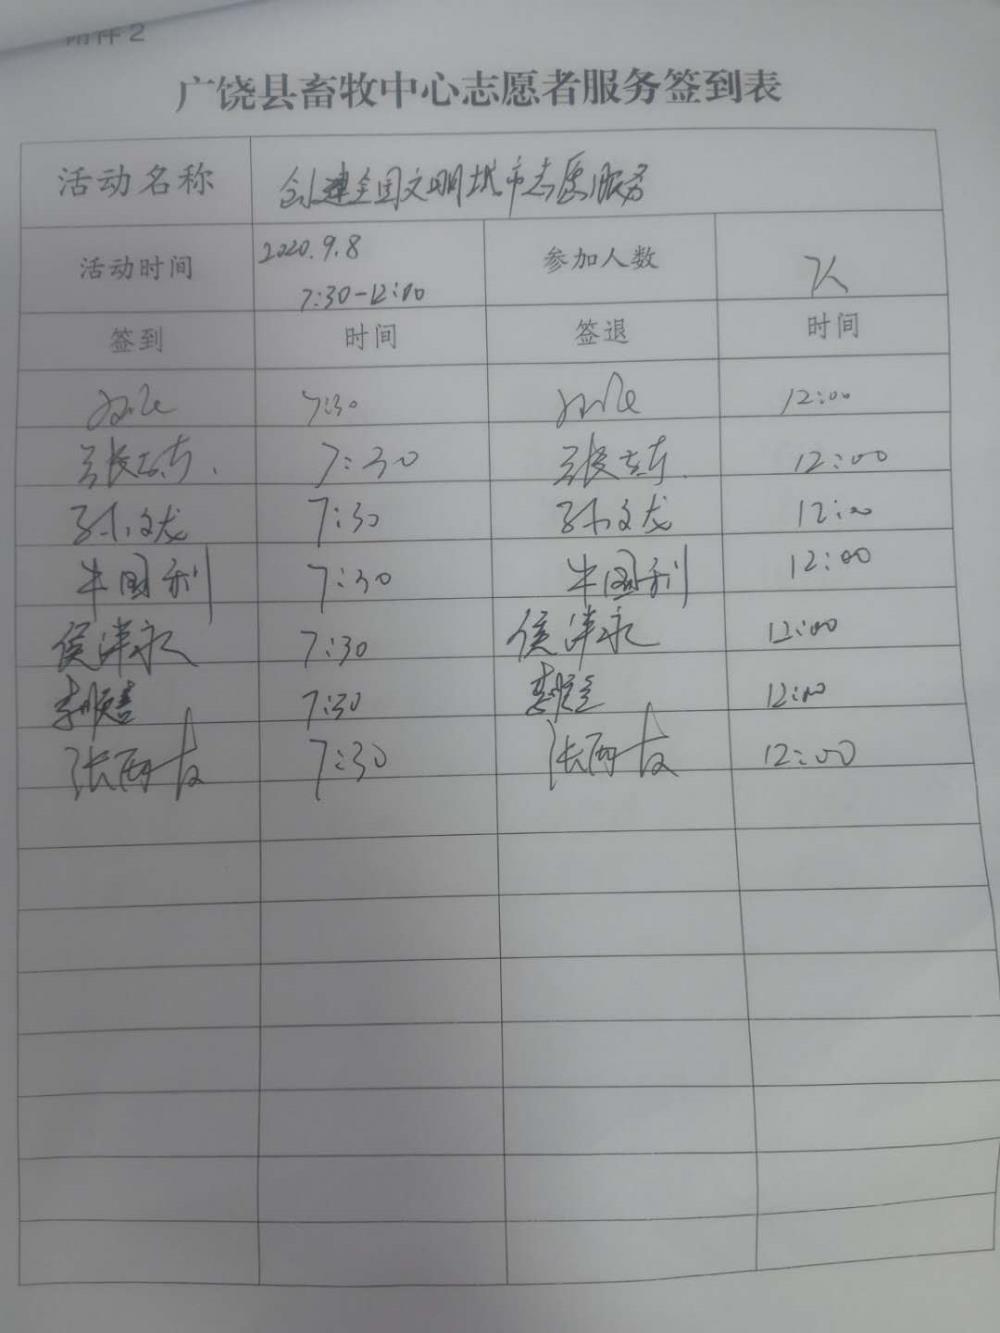 附件2
广饶县畜牧中心志愿者服务签到表
活动名称 创建全国文明城市志愿服务
活动时间 2020.9.8 7:30-12:00 参加人数 7人
签到 时间 签退 时间
7:30 12:00
张志东 7:30 张志东 12:00
孙文龙 7:30 孙文龙 12:00
牛国利 7:30 牛国利 12:00
侯洋永 7:30 侯洋永 12:00
7:30 12:00
张雨友 7:30 张雨友 12:00